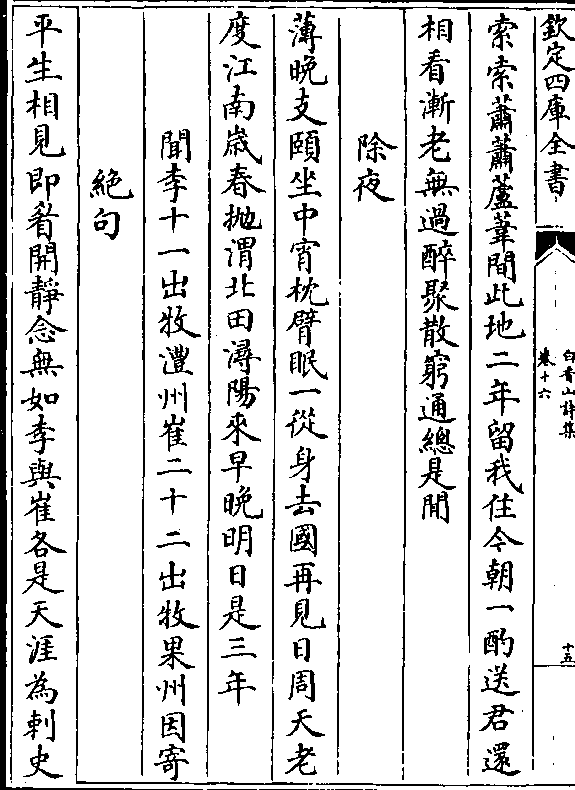 欽定四庫全書
白香山詩集
卷十六
十五
索索蕭蕭蘆葦間此地二年留我住今朝一酌送君還
相看漸老無過醉聚散窮通總是閒
除夜
薄晚支頤坐中宵枕臂眠一從身去國再見日周天老
度江南嵗春抛渭北田潯陽來早晚明日是三年
聞李十一出牧澧州崔二十二出牧果州因寄
絶句
平生相見即眉開靜念無如李與崔各是天涯為刺史